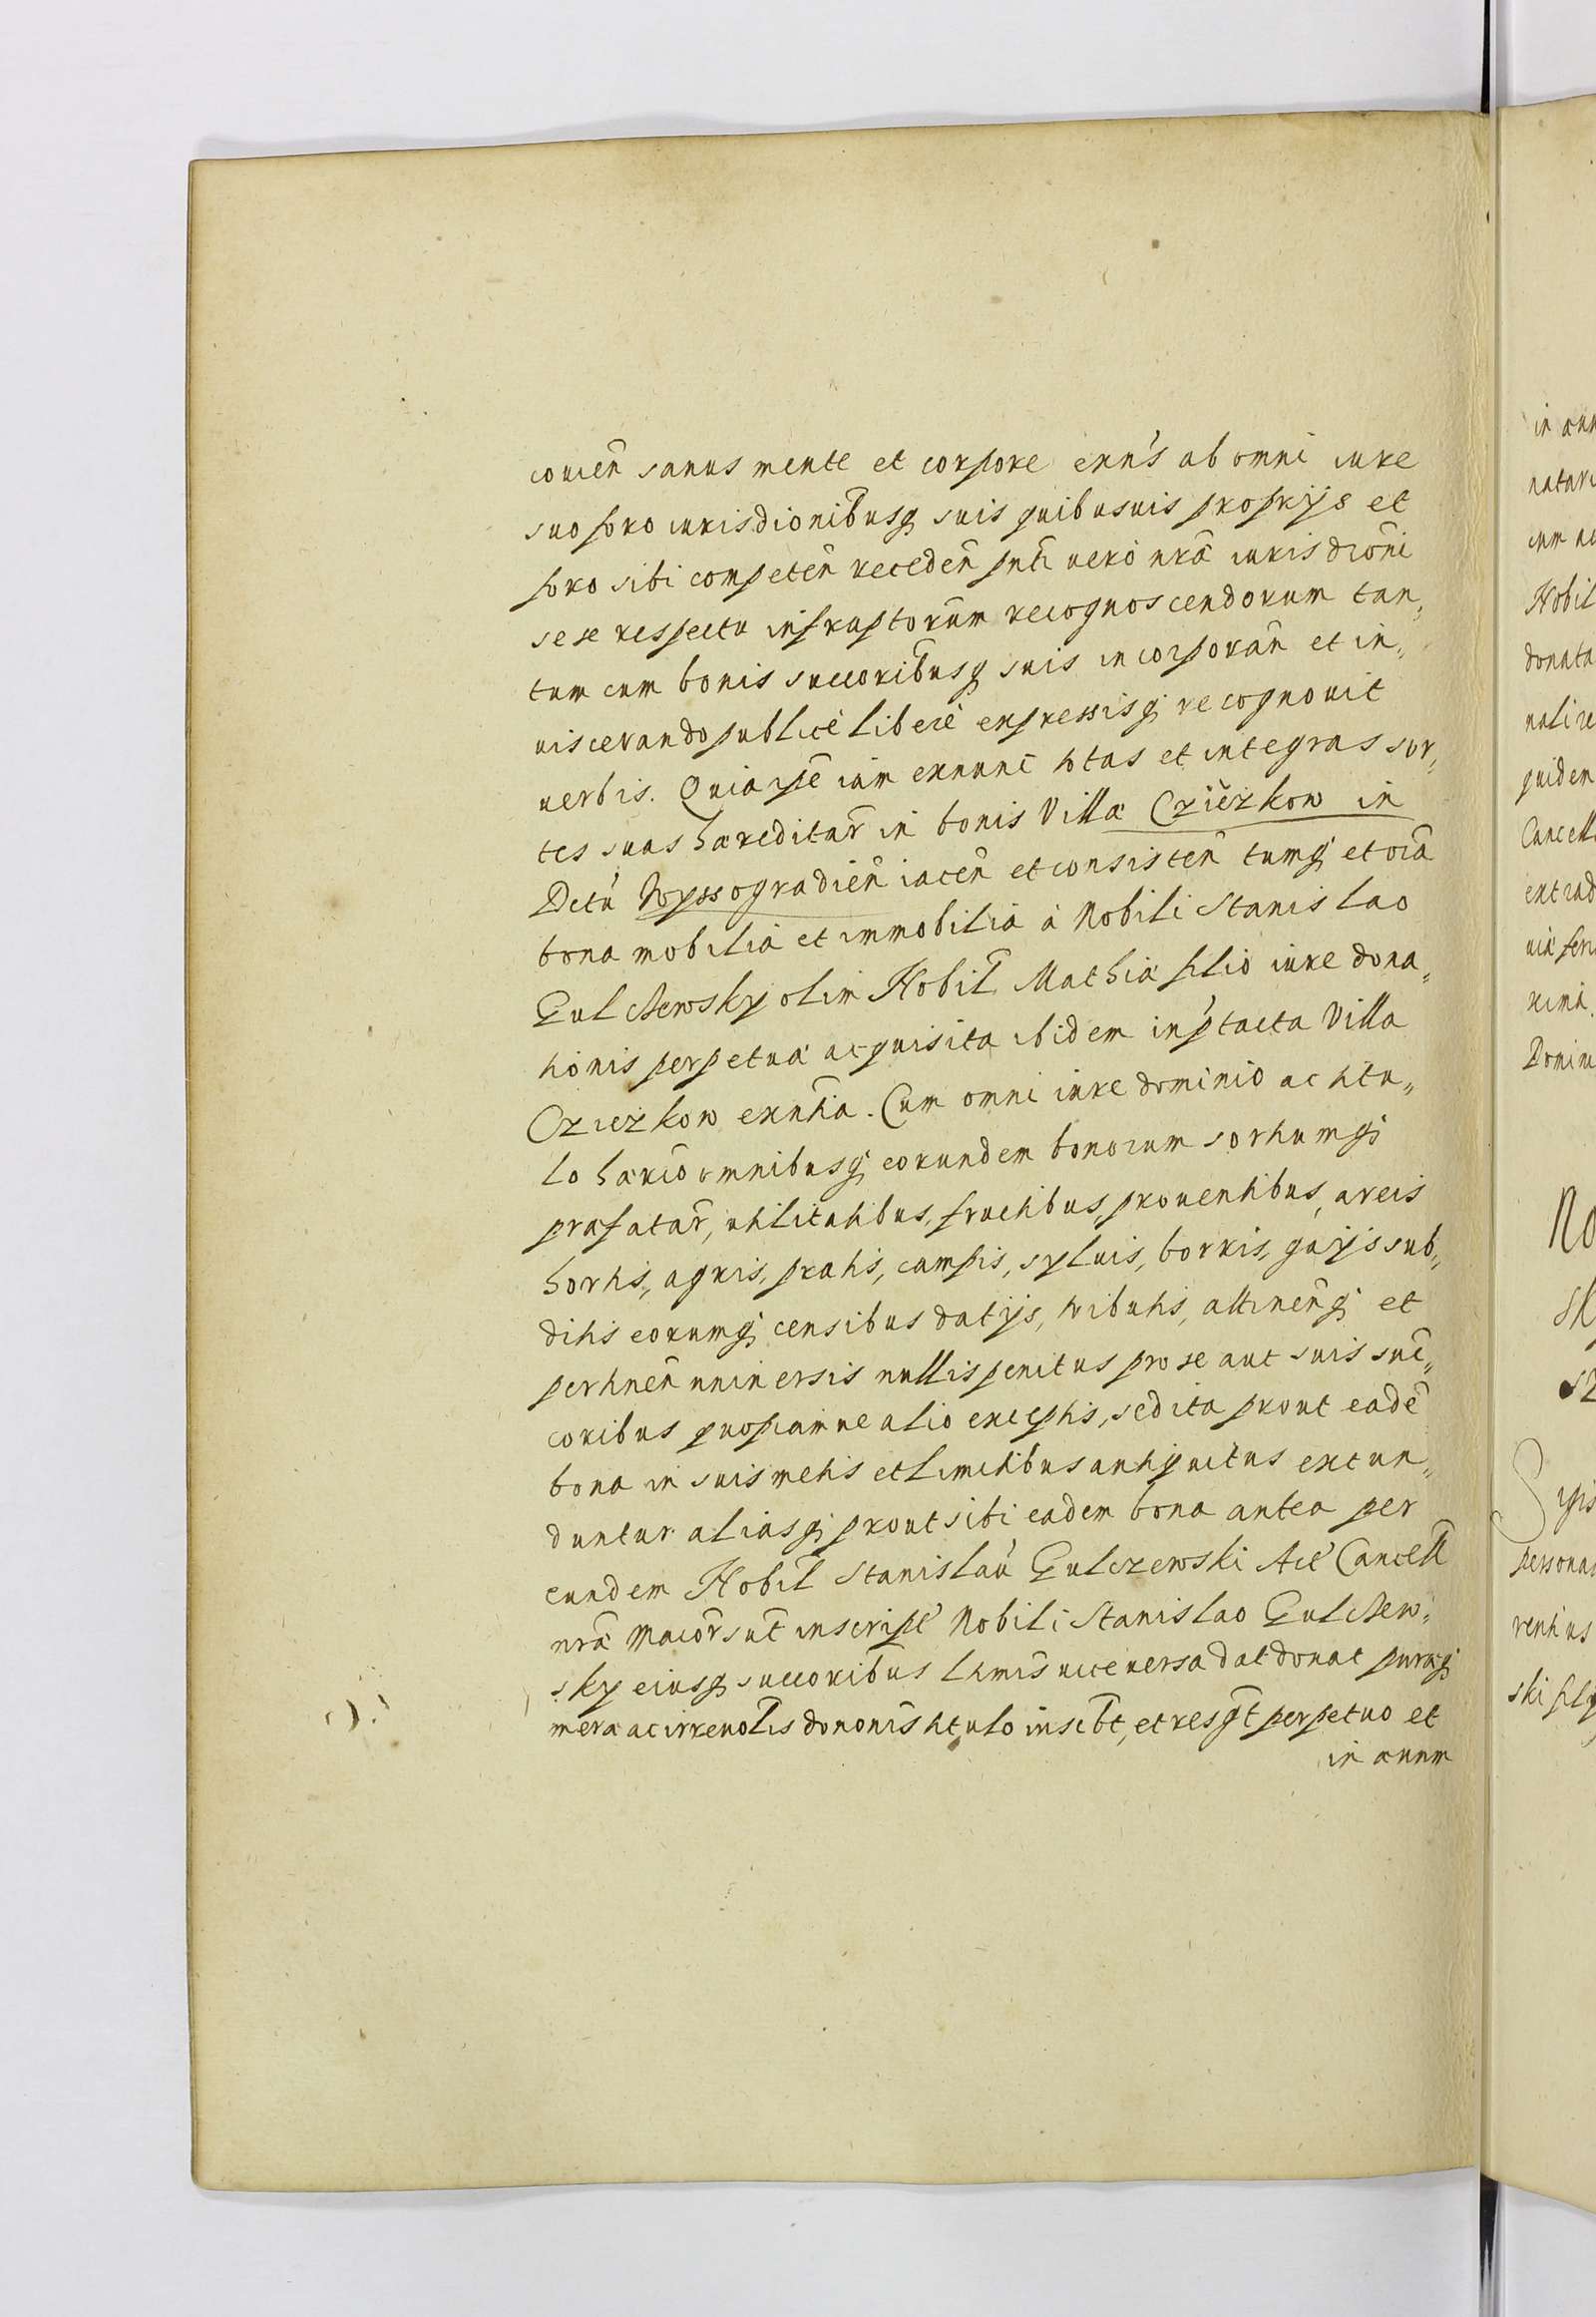 comen̄ sanus mente et corpore exn̄s ab omni iure
suo foro iurisdionibusq́ suis quibusuis proprijs et
foro sibi competen̄ receden̄ pn̄ti uerò nrã iurisdiōni
sese respectu infraptorūm recognoscendorum tan„
tum cum bonis succoribusq́ suis incorporan̄ et in„
uiscerando publicè liberè expressisq́ recognouit
uerbis. Quia ipse iam exnunc totas et integras sor„
tes suas hæreditar̄ in bonis Villæ Cziezkow in
Dctũ Wyssogradien̄ iacen̄ et consisten̄ tumq́ et oīa
bona mobilia et immobilia à Nobili Stanislao
Gulchewsky olim Nobil̄ Mathiæ filio iure dona„
tionis perpetuæ acquisita ibidem in ṕtacta Villa
Cziezkow exn̄tia. Cum omni iure dominio ac titu„
lo hærio omnibusq́ eorundem bonorum sortiumq́
præfatar̄, utilitatibus, fructibus, prouentibus, areis
hortis, agris, pratis, campis, syluis, borris, gayis sub„
ditis eorumq́ censibus datijs, tributis, attinen̄q́ et
pertinen̄ uniuersis nullis penitus pro se aut suis suc̄„
coribus quopiam ue alio exceptis, sed ita prout eadē
bona in suis metis et limitibus antiquitus extun„
duntur aliasq́ prout sibi eadem bona antea per
eundem Nobil̄ Stanislaũ Gulczewski Acĕ Cancell̄
nrã Maior̄ sūt inscripĕ Nobili Stanislao Gulchew„
sky eiusq́ succoribus ltimis uice uersa dat donat puræq́
meræ ac irreuolis dononis titulo inscbt, et resgt perpetuo et
in æuum
in æuu
Nobil
donata
quidem
Cancell
Domin
No
sk
sz
persona
ski